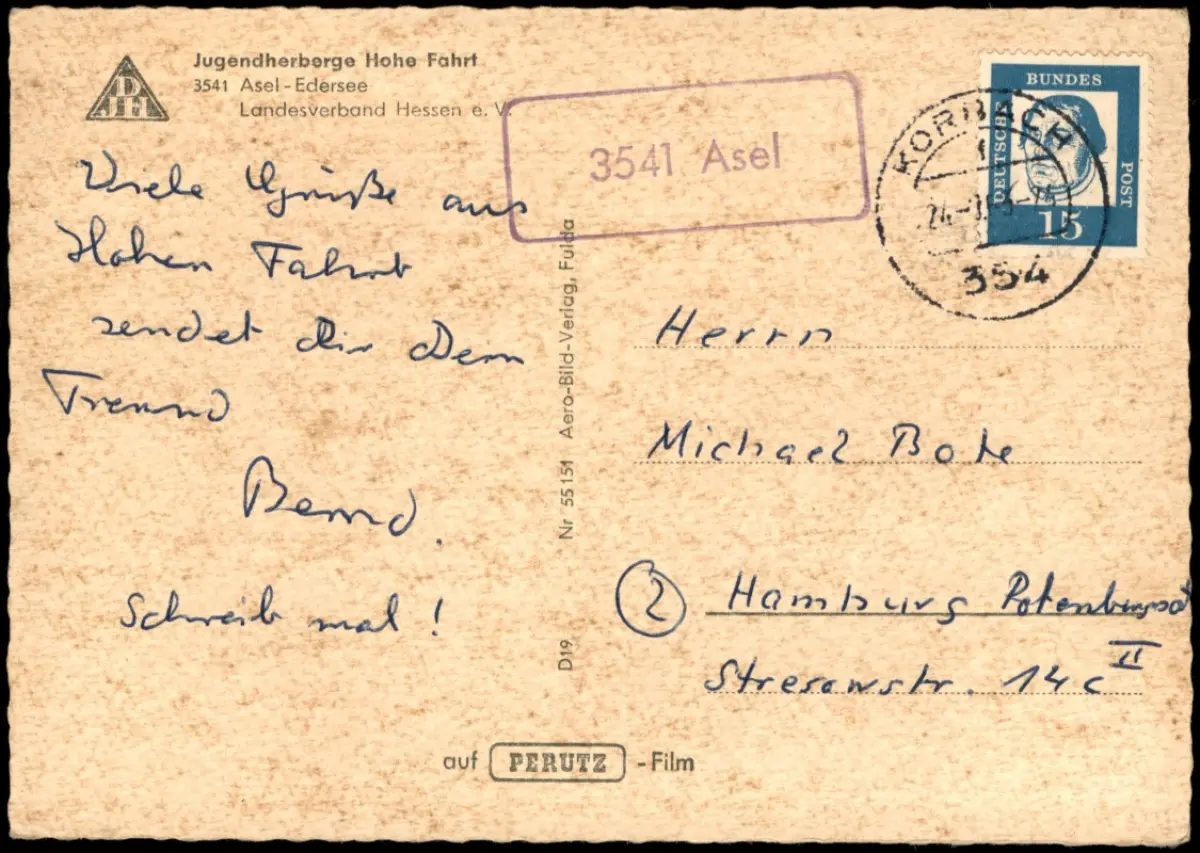 DJH
Jugendherberge Hohe Fahrt
3541 Asel-Edersee
Landesverband Hessen e. V.
3541 Asel
KORBACH
1
354
DEUTSCHE
BUNDES
POST
15
Viele Grüße aus
Hohen Fahrt
sendet Dir Dein
Freund
Bernd.
Schreib mal!
Nr 55151 Aero-Bild-Verlag, Fulda
D19
Herrn
Michael Bote
2 Hamburg
Stresowstr. 14c II
auf PERUTZ -Film